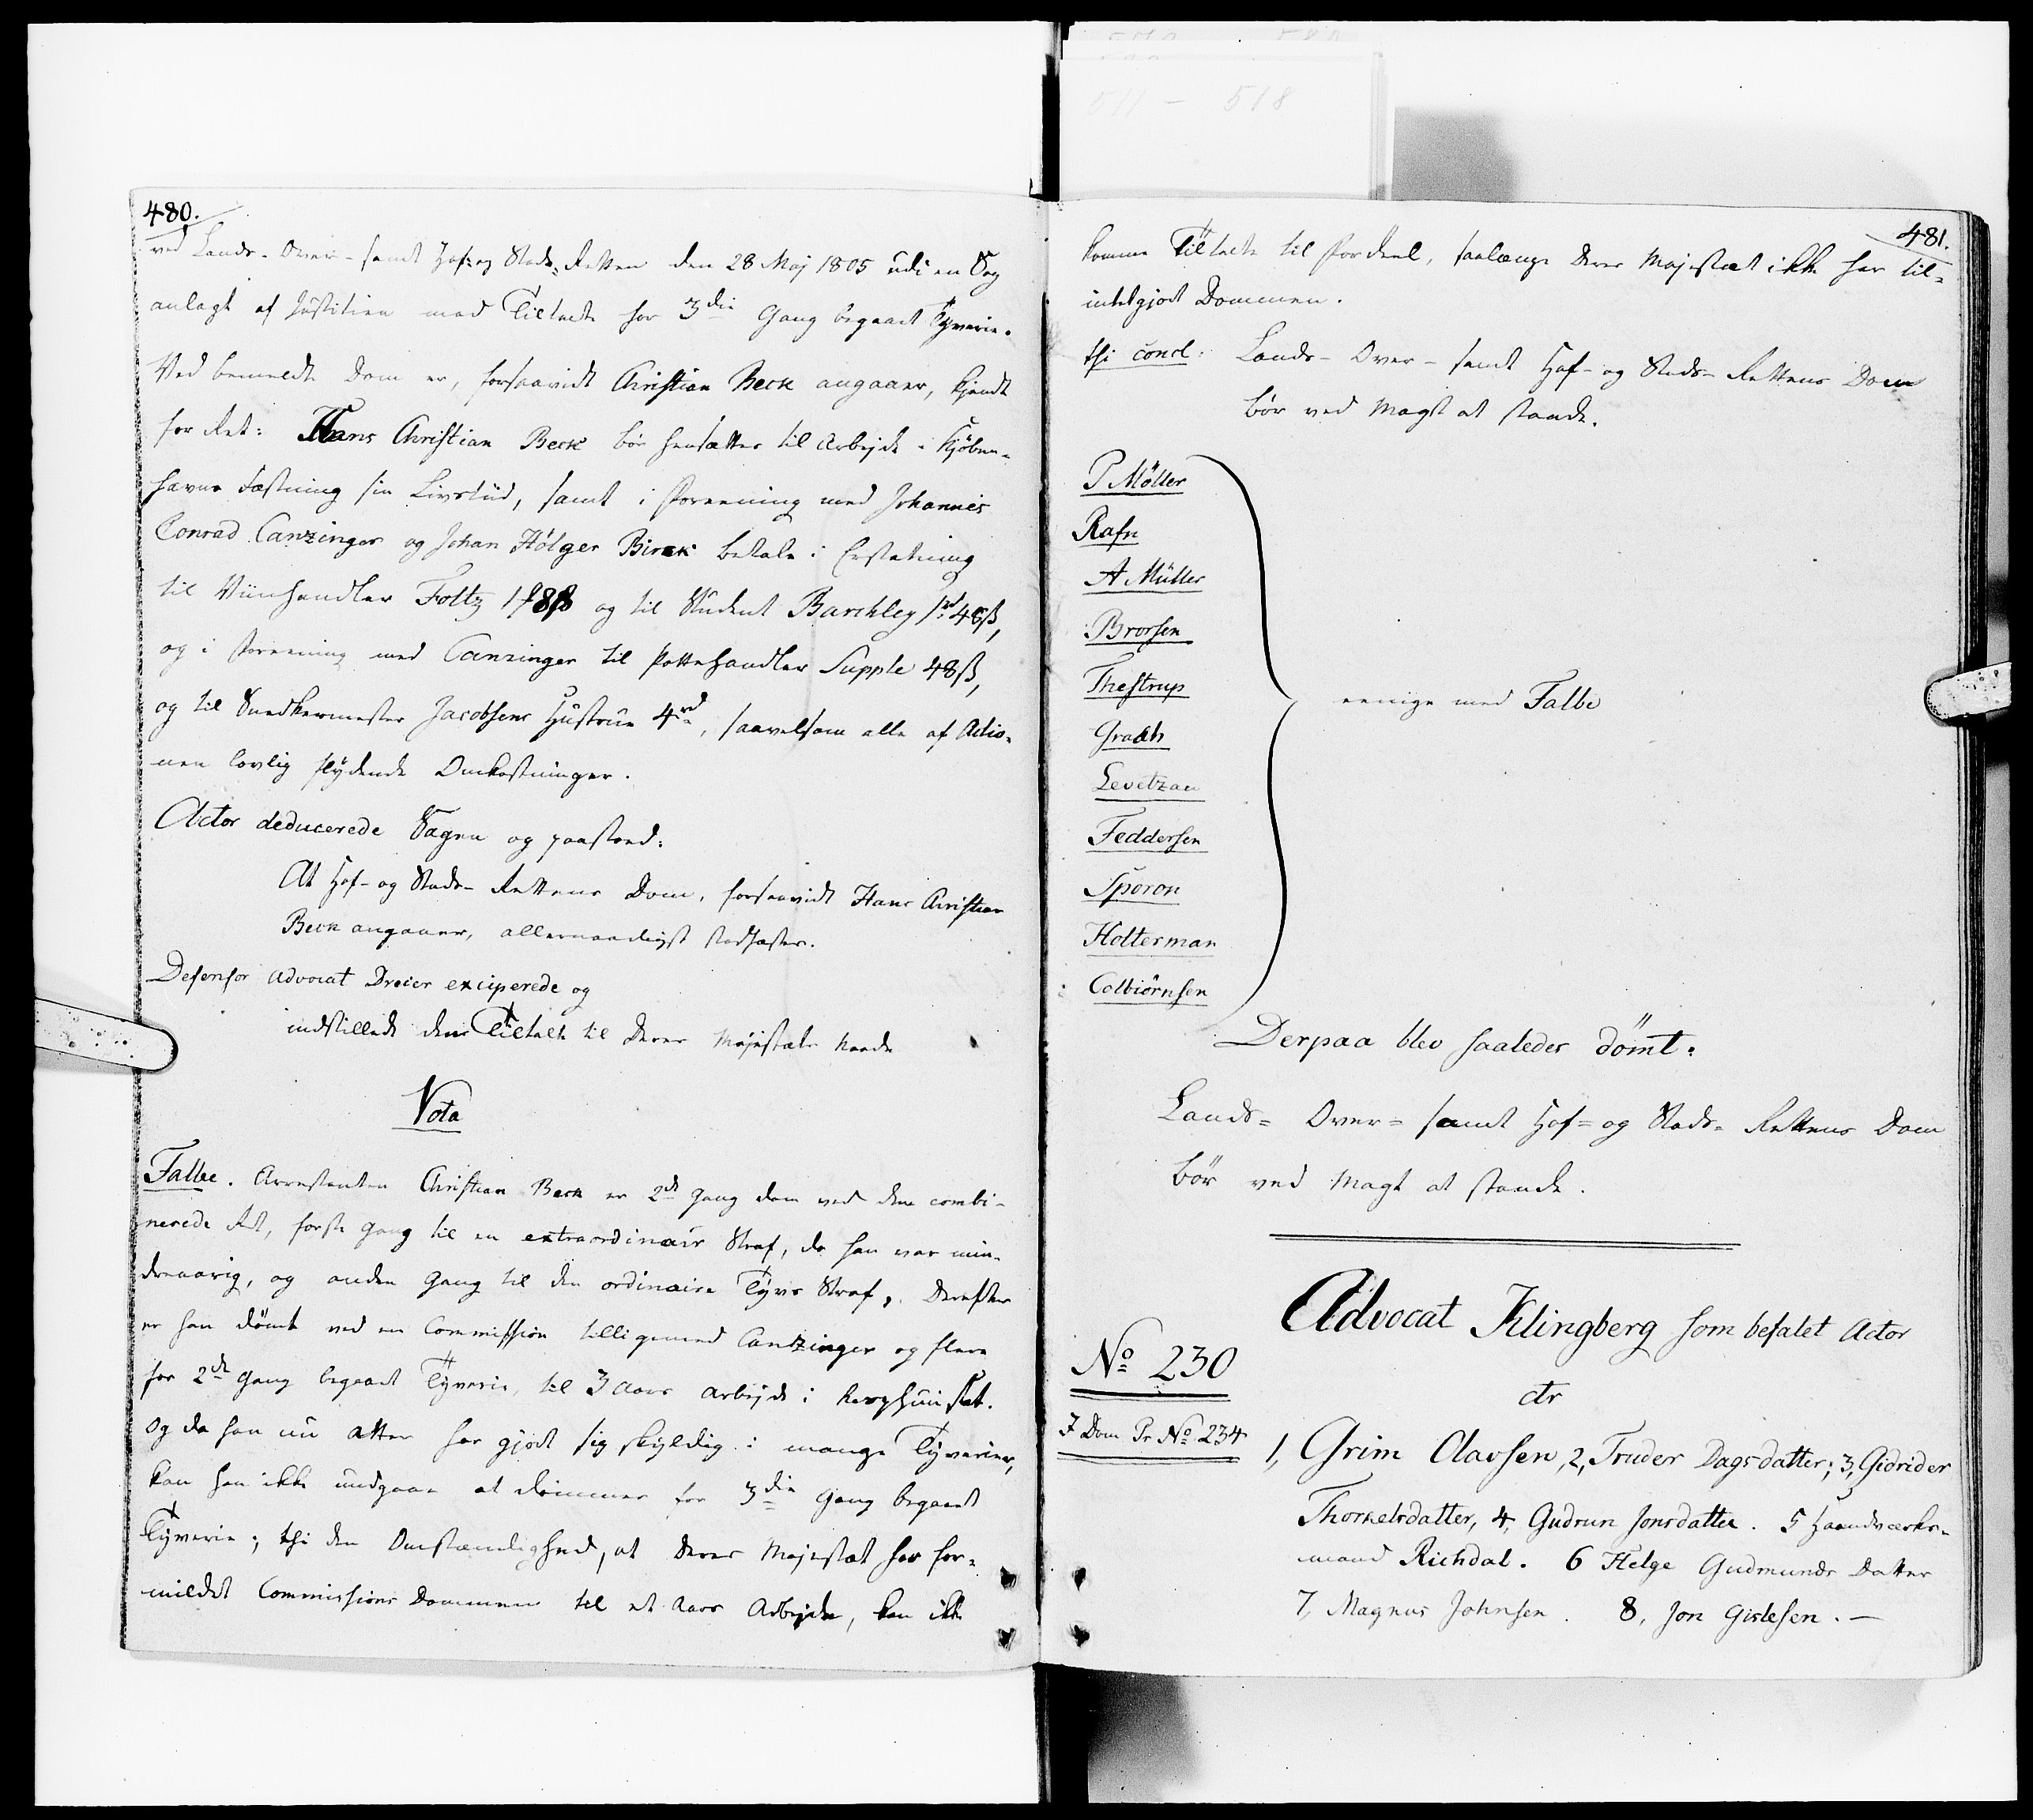 480.
ved Lands- Over- samt Hof- og Stads-Retten den 28 Maj 1805 udi en Sag
anlagt af Justitien mod Tiltalte for 3die Gang begaaet Tyverie.
Ved bemeldte Dom er, forsaavidt Christian Beck angaaer, kjendt
for Ret: Hans Christian Beck bör hensættes til Arbejde i Kjöben-
havns Fæstning sin Livstiid, samt i Foreening med Johannes
Conrad Canzinger og Johan Hólger Birck betale i Erstatning
til Viinhandler Foltz 8ß og til Student Barchley 1rd 48ß,
og i Foreening med Canzinger til Pottehandler Supple 48ß,
og til Snedkermester Jacobsens Hustrue 4rd, saavelsom alle af Actio-
nen lovlig flydende Omkostninger.
Actor deducerede Sagen og paastod:
At Hof- og Stads- Rettens Dom, forsaavidt Hans Christian
Beck angaaer, allernaadigst stadfæstes.
Defensor Advocat Dreier exciperede og
indstillede den Tiltalte til Deres Majestæts Naade
Vota
Falbe. Arrestanten Christian Beck er 2de Gang dömt ved den combi-
nerede Ret, förste Gang til en extraordinair Straf, da han var min-
dreaarig, og anden Gang til den ordinaire Tyvs Straf. Derefter
er han dömt ved en Commission tilligemed Cantzinger og flere
for 2de Gang begaaet Tyverie, til 3 Aars Arbejde i Rasphuuset.
Og da han nu atter har gjort sig skyldig i mange Tyverier,
kan han ikke undgaae at dömmes for 3die Gang begaaet
Tyverie; thi den Omstændighed, at Deres Majestæt har for-
mildet Commissions Dommen til et Aars Arbejde, kan ikke
481.
komme Tiltalte til Fordeel, saalænge Deres Majestæt ikke har til-
intetgjort Dommen.
thi concl: Lands- Over- samt Hof- og Stads- Rettens Dom
bör ved Magt at stande.
P Möller
Rafn
A Müller
Brorsen
Thestrup
Graah
Levetzau
Feddersen
Sporon
Holterman
Colbiörnsen
eenige med Falbe
Derpaa blev saaledes dömt:
Lands= Over= samt Hof= og Stads= Rettens Dom
bör ved Magt at stande.
Advocat Klingberg som befalet Actor
No 230
ctr
I Dom Pr No 234
1, Grim Olavsen, 2, Truder Dagsdatter; 3, Gidrider
Thorkelsdatter, 4, Gudrun Jonsdatter. 5 Haandværks-
mand Richdal. 6 Helge Gudmunds Datter
7, Magnus Johnsen. 8, Jon Gislesen. —
511 - 518